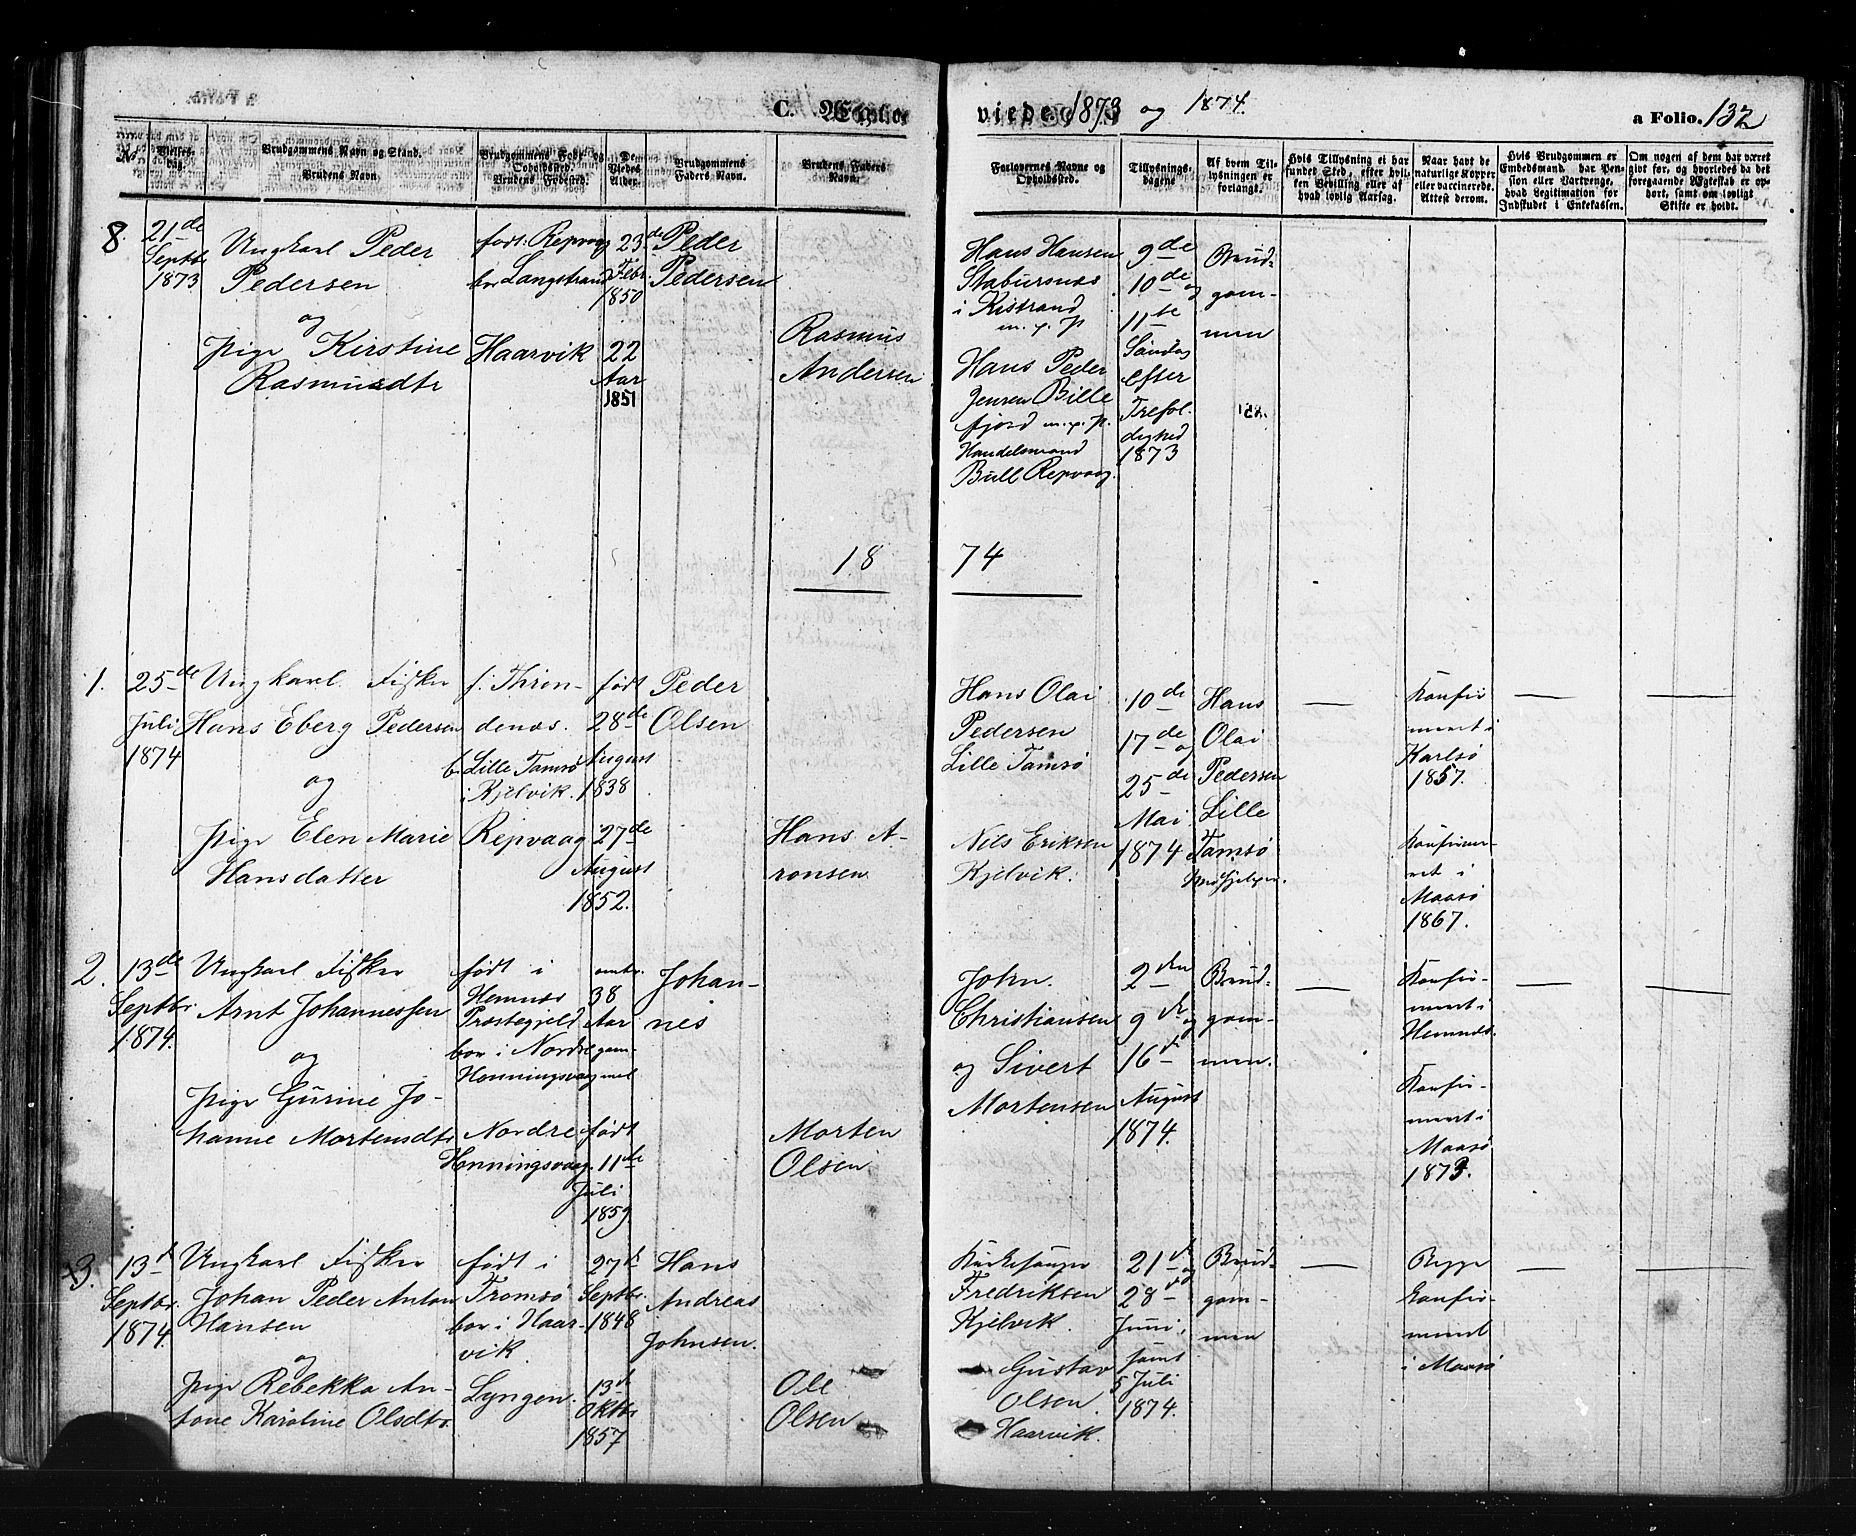 C. Ægte-
viede. 1873 og 1874.
a Folio. 132
No.
Vielses-
dag.
Brudgommens Navn og Stand.
Brudens Navn.
Brudgommens Føde- og
Opholdssted.
Brudens Fødested.
De
Viedes
Alder.
Brudgommens
Faders Navn.
Brudens Faders
Navn.
Forlovernes Navne og
Opholdssted.
Tillysnings-
dagene
Af hvem Til-
lysningen er
forlangt.
Hvis Tillysning ei har
fundet Sted, efter hvil-
ken Bevilling eller af
hvad lovlig Aarsag.
Naar havt de
naturlige Kopper
eller vaccinerede.
Attest derom.
Hvis Brudgommen er
Embedsmand, har Pen-
sion eller Vartpenge,
hvad Legitimation for
Indskudet i Enkekassen.
Om nogen af dem har været
givt før, og hvorledes da det
foregaaende Ægteskab er op-
hørt, samt om lovligt
Skifte er holdt.
8.
21de
Septbr
1873
Ungkarl Peder
Pedersen
og
Pige Kirstine
Rasmusdtr
født Repvaag
bor Langstrand
Haarvik
23de
Febr.
1850
22
Aar
1851
Peder
Pedersen
Rasmus
Andersen
Hans Hansen
Stabursnæs
i Kistrand
m. p. p
Hans Peder
Jensen Bille
fjord m. p. p.
Handelsmand
Bull Repvaag.
9de
10de og
11te
Søndag
efter
Trefol-
dighed
1873
Brud-
gom-
men
18 74
1.
25de
Juli
1874
Ungkarl Fisker
Hans Eberg Pedersen
og
Pige Elen Marie
Hansdatter
f. Thron-
denæs.
b. Lille Tamsø
i Kjelvik.
Repvaag
født
28de
August
1838
27de
August
1852.
Peder
Olsen
Hans A-
ronsen
Hans Olai
Pedersen
Lille Tamsø
Nils Eriksen
Kjelvik.
10de
17de og
25de
Mai
1874
Hans
Olai
Pedersen
Lille
Tamsø
Konfir
meret i
Karlsø
1857.
Konfirme-
ret i
Maasø
1867.
2.
13de
Septbr
1874.
Ungkarl Fisker
Arnt Johannessen
og
Pige Gurine Jo-
hanne Mortensdtr
født i
Hemnæs
Præstegjeld
bor i Nordre
Honningsvaag
Nordre
Honningsvaag.
omtr.
38
Aar
gam-
mel
født
11te
Juli
1859.
Johan-
nes
Morten
Olsen
John
Christiansen
og Sivert
Mortensen
2den
9de og
16de
August
1874.
Brud-
gom-
men.
Konfir-
meret i
Hemnæs.
Konfir-
meret i
Maasø
1873.
3.
13de
Septbr.
1874.
Ungkarl Fisker
Johan Peder Anton
Hansen
og
Pige Rebekka An-
tone Karoline Olsdtr
født i
Tromsø
bor i Haar-
vik.
Lyngen.
27de
Septbr.
1848
13de
Oktbr
1857
Hans
Andreas
Johnsen.
Ole
Olsen
Kirkesanger
Fredriksen
Kjelvik.
Gustav
Olsen
Haarvik.
21de og
28de
Juni,
samt
5 Juli
1874.
Brud-
gom-
men
Begge
konfir-
meret
i Maasø